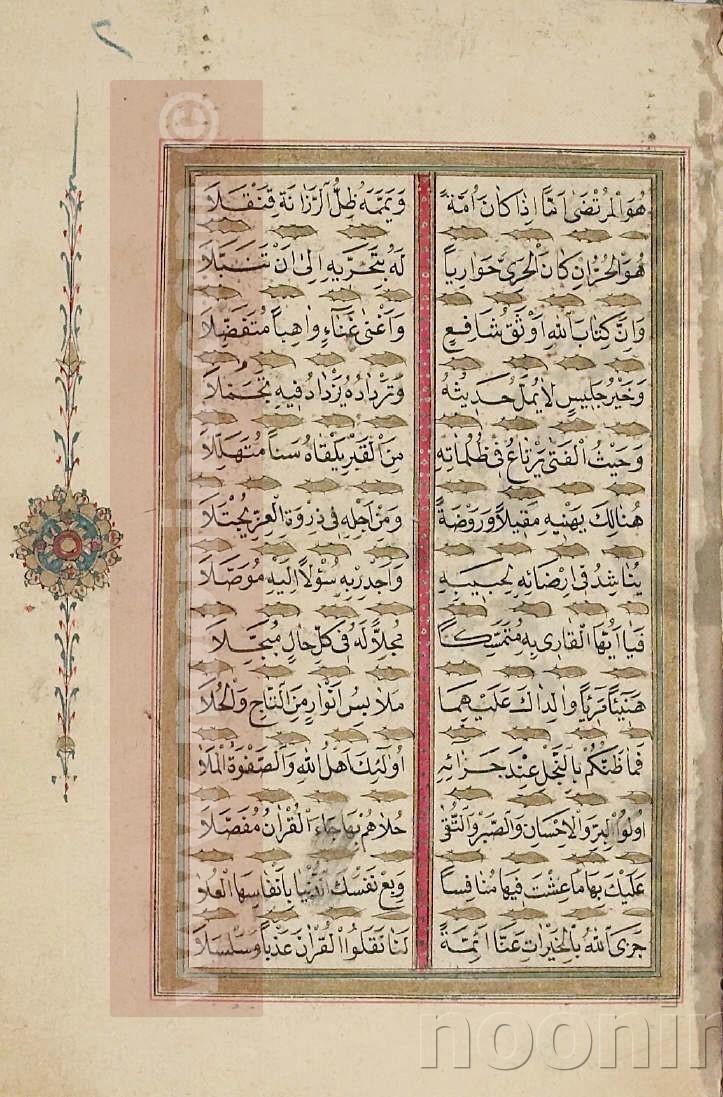 هُوَ الْمُرْتَضَى اَمًّا اِذَا كَانَ اُمَّةً وَيَمَّمَهُ ظِلُّ الرَّزَانَةِ قَنْقَلَا
هُوَ الْحُرُّ اِنْ كَانَ الْحَرِىَّ حَوَارِيًا لَهُ بِتَحَرِّيهِ اِلٰى اَنْ تَنَبَّلَا
وَاِنَّ كِتَابَ اللّٰهِ اَوْثَقُ شَافِعٍ وَاَغْنٰى غَنَاءٍ وَاهِبًا مُتَفَضِّلَا
وَخَيْرُ جَلِيسٍ لَا يُمَلُّ حَدِيثُهُ وَتَرْدَادُهُ يَزْدَادُ فِيهِ تَجَمُّلَا
وَحَيْثُ الْفَتٰى يَرْتَاعُ فِى ظُلُمَاتِهِ مِنَ الْقَبْرِ يَلْقَاهُ سَنًا مُتَهَلِّلَا
هُنَالِكَ يَهْنِيهِ مَقِيلًا وَرَوْضَةً وَمِنْ اَجْلِهِ فِى ذِرْوَةِ الْعِزِّ يُجْتَلَا
يُنَاشِدُ فِى اِرْضَائِهِ لِحَبِيبِهِ وَاَجْدِرْ بِهِ سُؤْلًا اِلَيْهِ مُوَصَّلَا
فَيَا اَيُّهَا الْقَارِى بِهِ مُتَمَسِّكًا مُجِلًّا لَهُ فِى كُلِّ حَالٍ مُبَجِّلَا
هَنِيئًا مَرِيئًا وَالِدَاكَ عَلَيْهِمَا مَلَابِسُ اَنْوَارٍ مِنَ التَّاجِ وَالْحُلَا
فَمَا ظَنُّكُمْ بِالنَّجْلِ عِنْدَ جَزَائِهِ اُولٰئِكَ اَهْلُ اللّٰهِ وَالصَّفْوَةُ الْمَلَا
اُولُوا الْبِرِّ وَالْاِحْسَانِ وَالصَّبْرِ وَالتُّقٰى حُلَاهُمْ بِهَا جَاءَ الْقُرَانُ مُفَصَّلَا
عَلَيْكَ بِهَا مَا عِشْتَ فِيهَا مُنَافِسًا وَبِعْ نَفْسَكَ الدُّنْيَا بِاَنْفَاسِهَا الْعُلَا
جَزَى اللّٰهُ بِالْخَيْرَاتِ عَنَّا اَئِمَّةً لَنَا نَقَلُوا الْقُرْاٰنَ عَذْبًا وَسَلْسَلَا
noonin